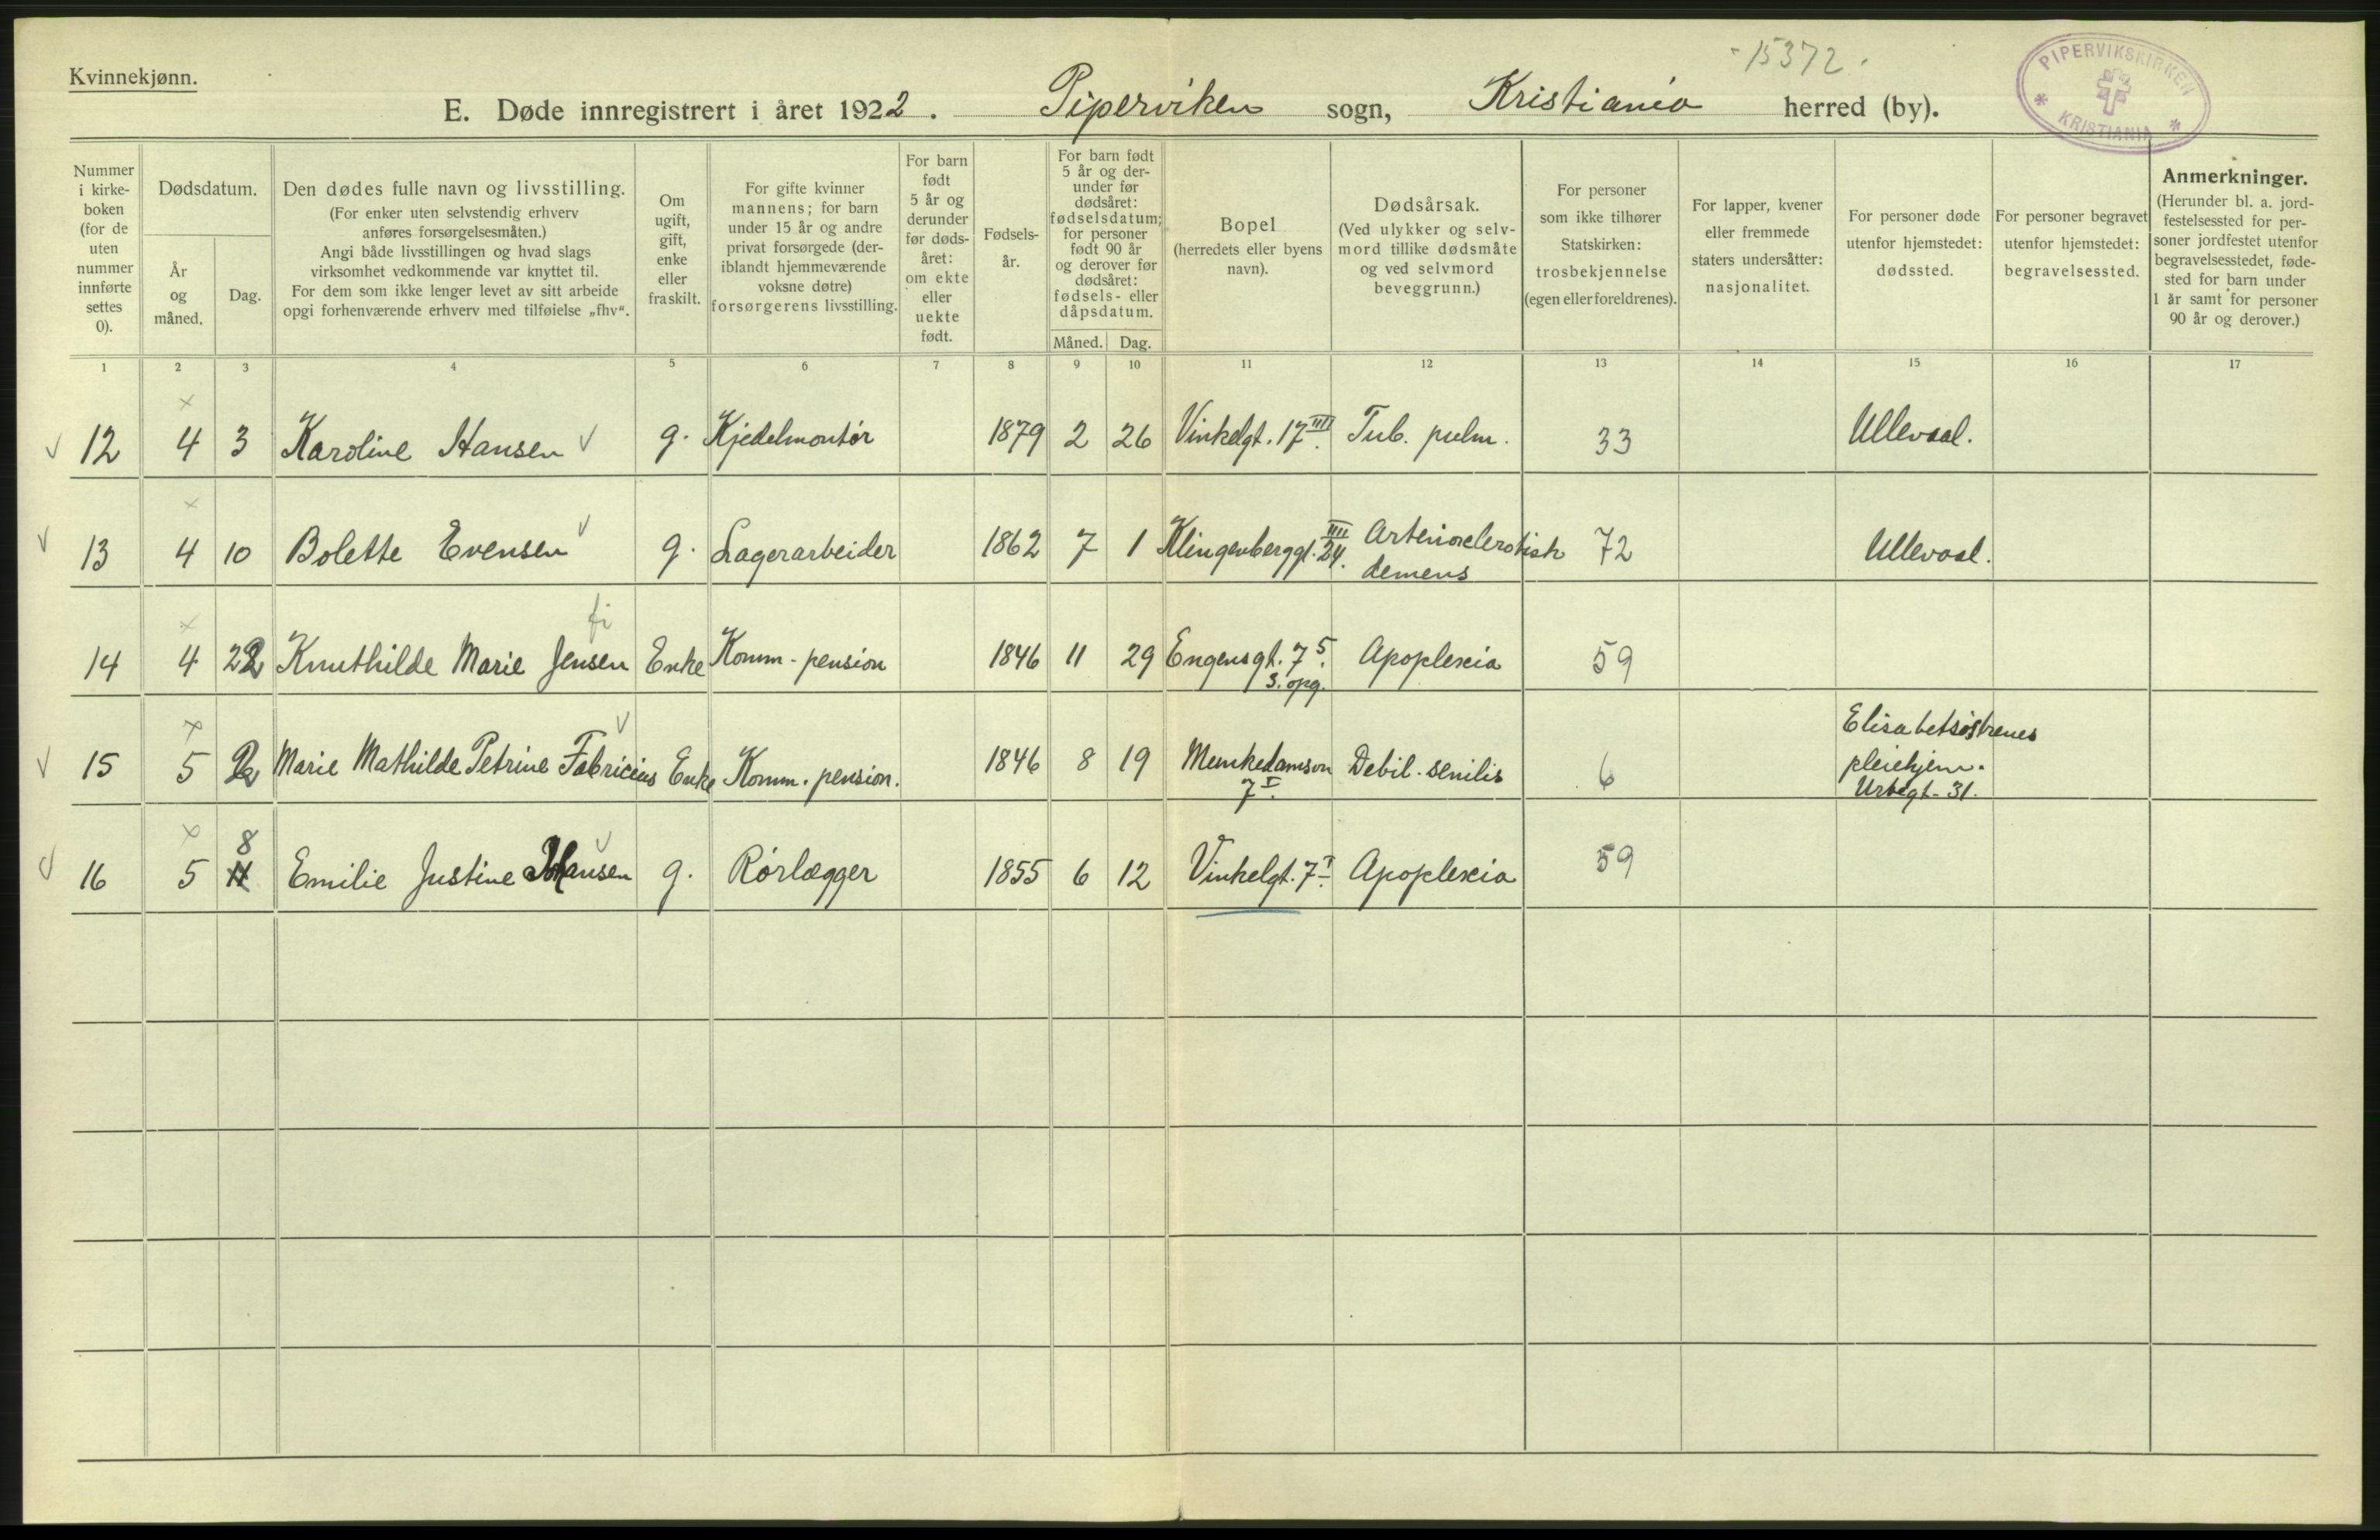 - 15372.
PIPERVIKSKIRKEN * KRISTIANIA *
Kvinnekjønn.
E. Døde innregistrert i året 1922. Piperviken sogn, Kristiania herred (by).
Nummer
i kirke-
boken
(for de
uten
nummer
innførte
settes
0).
Dødsdatum.
År
og
måned.
Dag.
Den dødes fulle navn og livsstilling.
(For enker uten selvstendig erhverv
anføres forsørgelsesmåten.)
Angi både livsstillingen og hvad slags
virksomhet vedkommende var knyttet til.
For dem som ikke lenger levet av sitt arbeide
opgi forhenværende erhverv med tilføielse „fhv“.
Om
ugift,
gift,
enke
eller
fraskilt.
For gifte kvinner
mannens; for barn
under 15 år og andre
privat forsørgede (der-
iblandt hjemmeværende
voksne døtre)
forsørgerens livsstilling.
For barn
født
5 år og
derunder
før døds-
året:
om ekte
eller
uekte
født.
Fødsels-
år.
For barn født
5 år og der-
under før
dødsåret:
fødselsdatum;
for personer
født 90 år
og derover før
dødsåret:
fødsels- eller
dåpsdatum.
Måned. Dag.
Bopel
(herredets eller byens
navn).
Dødsårsak.
(Ved ulykker og selv-
mord tillike dødsmåte
og ved selvmord
beveggrunn.)
For personer
som ikke tilhører
Statskirken:
trosbekjennelse
(egen eller foreldrenes).
For lapper, kvener
eller fremmede
staters undersåtter:
nasjonalitet.
For personer døde
utenfor hjemstedet:
dødssted.
For personer begravet
utenfor hjemstedet:
begravelsessted.
Anmerkninger.
(Herunder bl. a. jord-
festelsessted for per-
soner jordfestet utenfor
begravelsesstedet, føde-
sted for barn under
1 år samt for personer
90 år og derover.)
1 2 3 4 5 6 7 8 9 10 11 12 13 14 15 16 17
12 4 3 Karoline Hansen g. Kjedelmontør 1879 2 26 Vinkelgt. 17 III. Tub. pulm. 33 Ullevaal.
13 4 10 Bolette Evensen g. Lagerarbeider 1862 7 1 Klingenberggt. 24. IIII Arteriosclerotisk 72 Ullevaal.
demens
fi
14 4 22 Knuthilde Marie Jensen Enke Komm-pension 1846 11 29 Engensgt. 7 5. Apoplexia 59
3. opg.
15 5 2 Marie Mathilde Petrine Fabricius Enke Komm. pension. 1846 8 19 Munkedamson Debil. senilis 6 Elisabetsøstrenes
7 I. pleiehjem.
Urtegt. 31.
8
16 5 11 Emilie Justine Hansen g. Rørlægger 1855 6 12 Vinkelgt. 7 I. Apoplexia 59